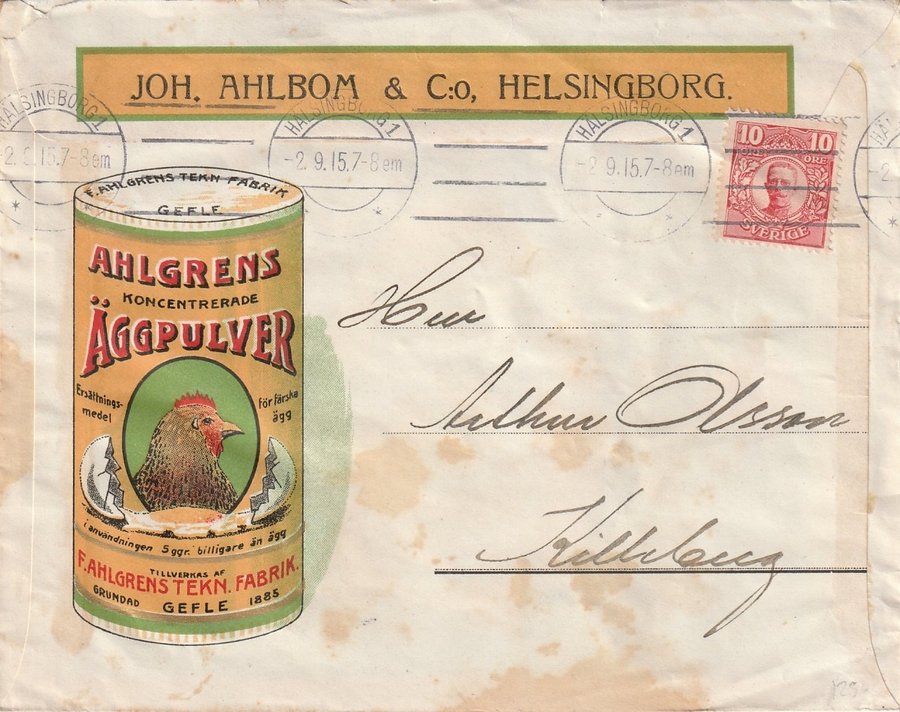 JOH. AHLBOM & C:o, HELSINGBORG.
HÄLSINGBORG 1
-2.9.15.7-8em
HÄLSINGBORG 1
-2.9.15.7-8em
HÄLSINGBORG 1
-2.9.15.7-8em
HÄ
-2
10 10
ÖRE ÖRE
SVERIGE
F. AHLGRENS TEKN FABRIK
GEFLE
AHLGRENS
KONCENTRERADE
ÄGGPULVER
Ersättnings-
medel
för färska
ägg
i användningen 5 ggr. billigare än ägg
TILLVERKAS AF
F. AHLGRENS TEKN. FABRIK.
GRUNDAD GEFLE 1885
Herr
Arthur Olsson
Killeberg